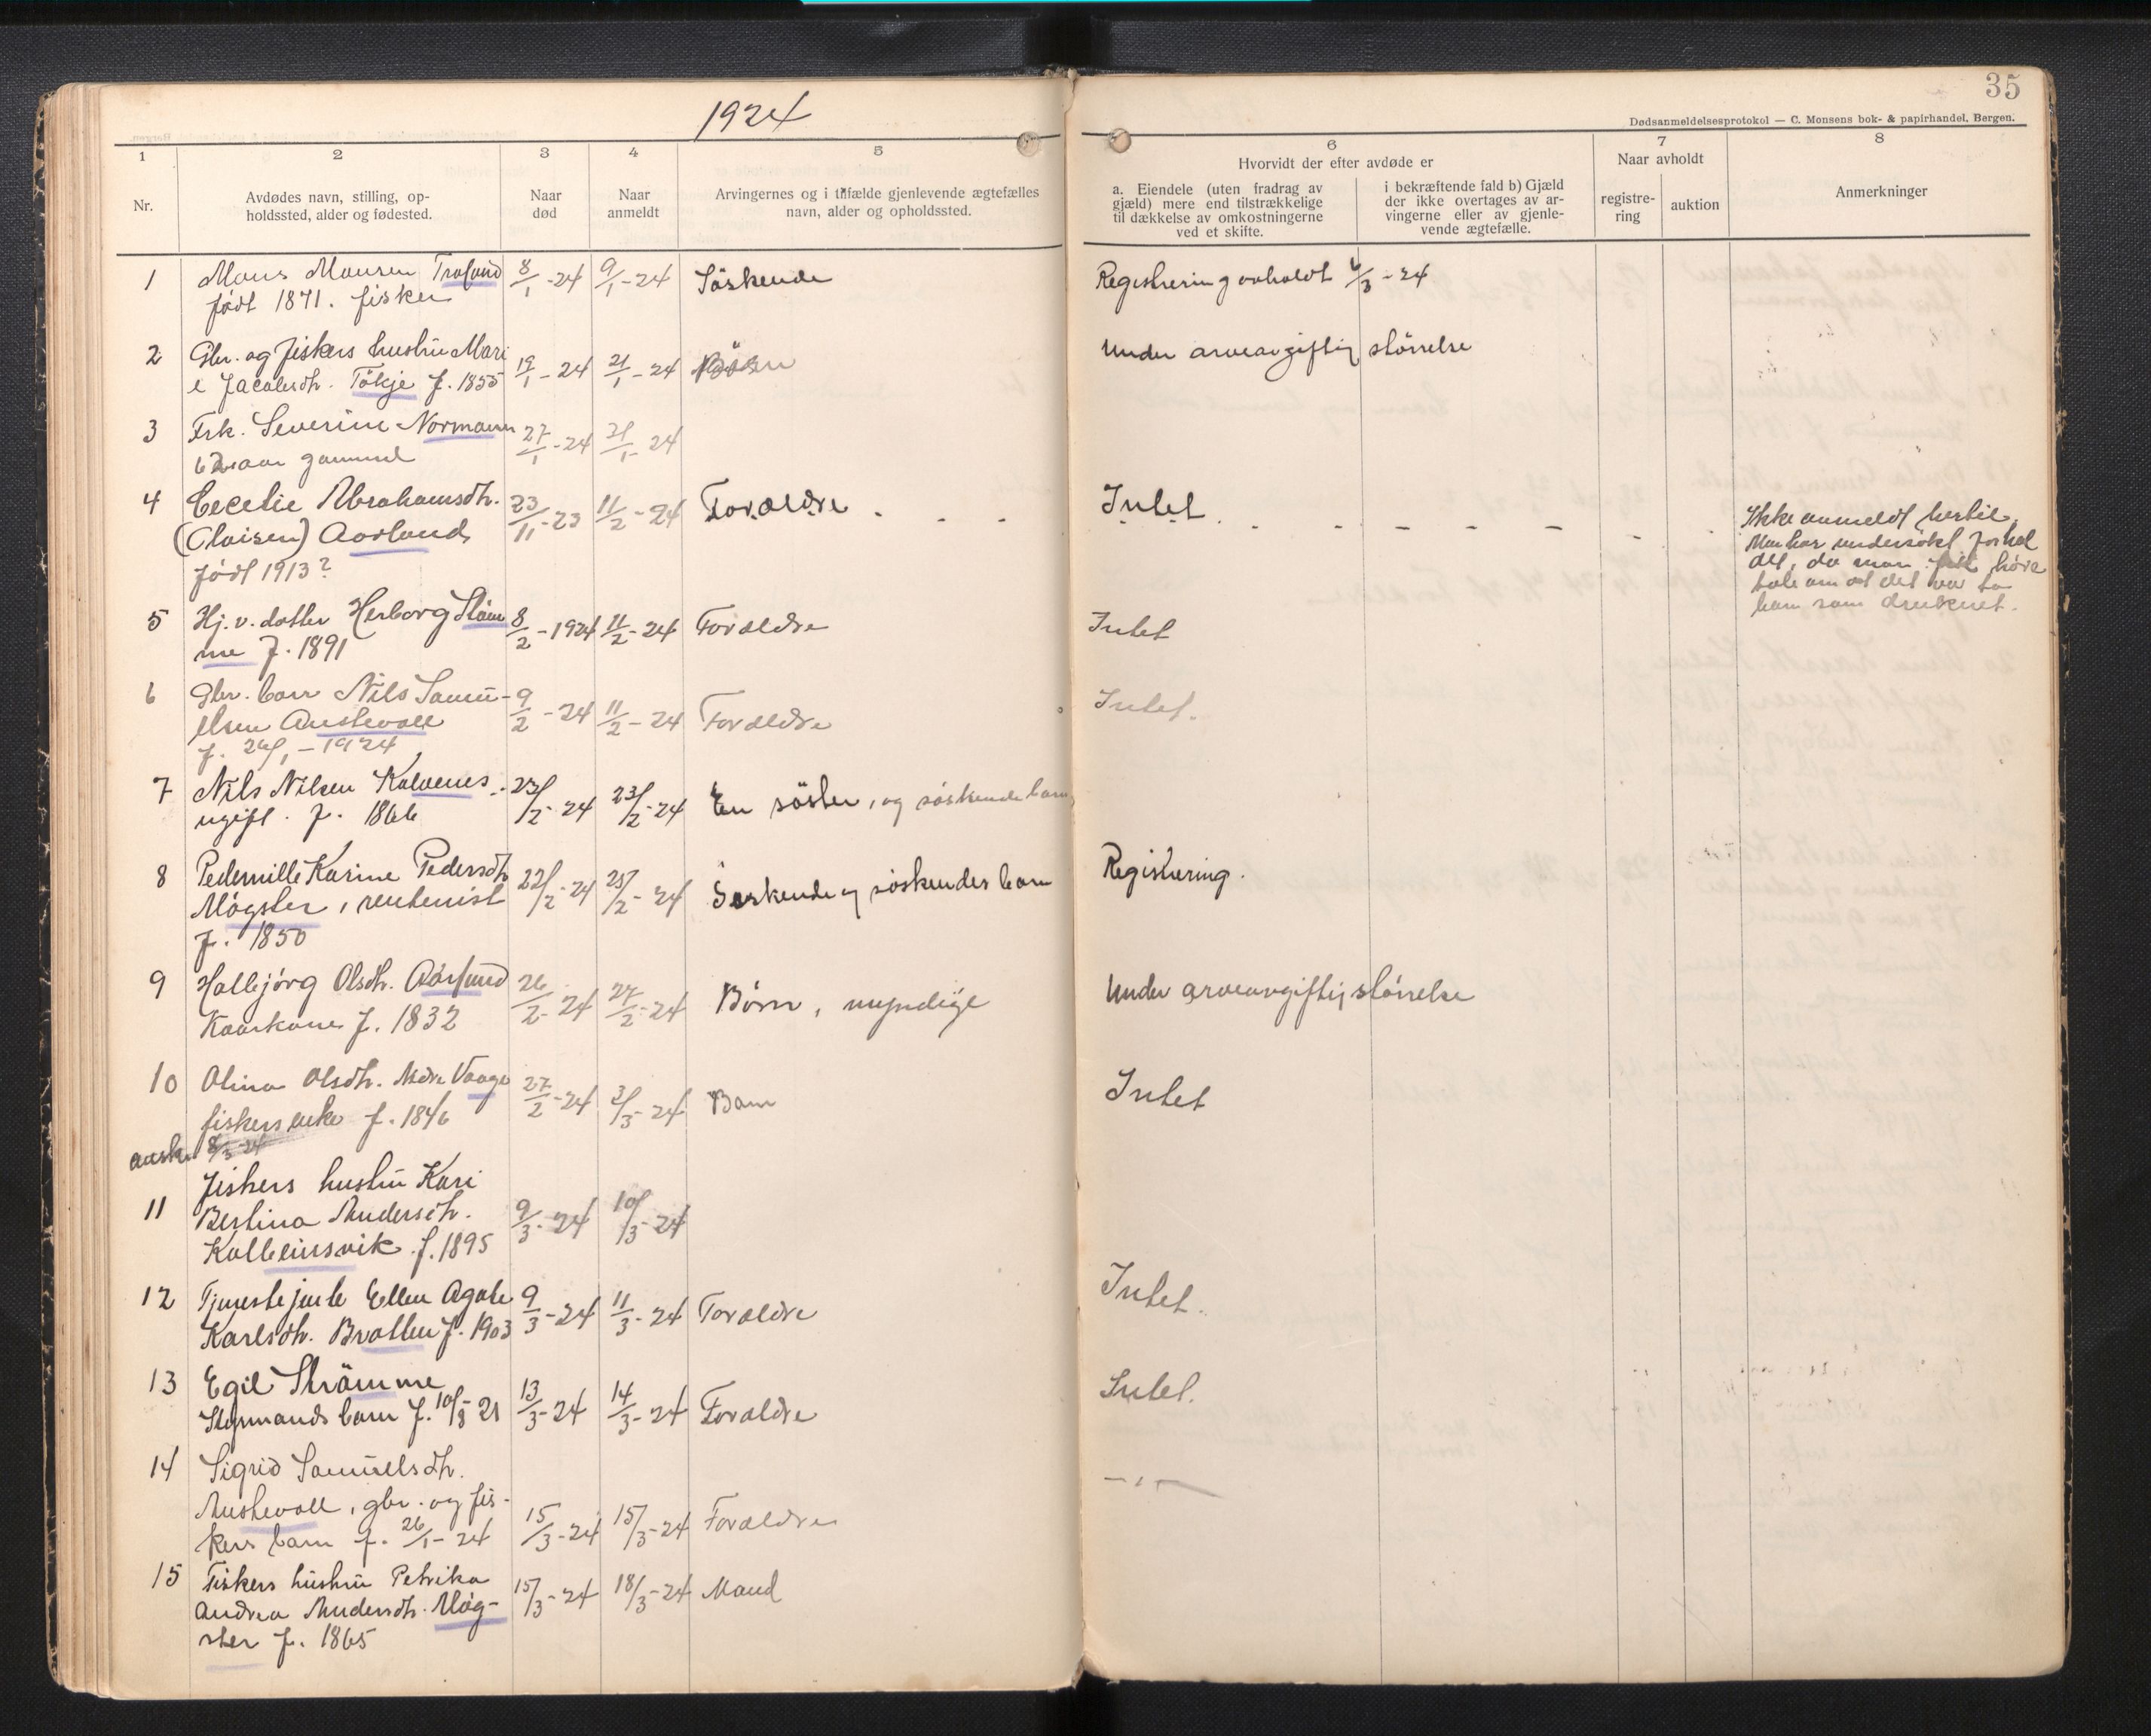 35
1924
Dødsanmeldelsesprotokol — C. Monsens bok- & papirhandel, Bergen.
1 2 3 4 5 6 7 8
Nr.
Avdødes navn, stilling, op-
holdssted, alder og fødested.
Naar
død
Naar
anmeldt
Arvingernes og i tilfælde gjenlevende ægtefælles
navn, alder og opholdssted.
Hvorvidt der efter avdøde er
a. Eiendele (uten fradrag av
gjæld) mere end tilstrækkelige
til dækkelse av omkostningerne
ved et skifte.
i bekræftende fald b) Gjæld
der ikke overtages av ar-
vingerne eller av gjenle-
vende ægtefælle.
Naar avholdt
registre-
ring
auktion
Anmerkninger
1 Mons Monsen 8/1-24 9/1-24 Söskende Registrering avholdt 6/3-24
født 1871. fisker
2 Gbr. og fiskers hustru Mari 19/1-24 21/1-24 Børn Under arveavgiftig störrelse
e Jacobsdtr. Tökje f. 1855
3 Frk. Severine Normann 27/1-24 24
62 aar gammel
4 Cecelie Abrahamsdtr. 23/11-23 11/2-24 Forældre Intet Ikke anmeldt hertil.
(Claisen) Aorland Man har undersøkt forhol
født 1913? det, da man fik høre
tale om at det var to
barn som druknet.
5 Hj. v. datter Herborg Störm 8/2-1924 11/2-24 Forældre Intet
me f. 1891
6 Gbr. barn Nils Samu- 9/2-24 11/2-24 Forældre Intet.
elsen Austevoll
f. 24/1-1924
7 Nils Nilsen Kalvenes. 23/2-24 23/2-24 En söster, og söskendebarn
ugift. f. 1866
8 Pedernille Karine Pedersdtr 22/2-24 25/2-24 Søskende og søskendes barn Registrering.
Møgster, rentenist
f. 1850
9 Hallbjørg Olsdtr. 26/2-24 27/2-24 Børn, myndige Under arveavgiftig størrelse
Kaarkone f. 1832
10 Olina Olsdtr. Nedre Vaage 27/2-24 3/3-24 Barn Intet
fiskers enke f. 1846
8/3-24
Fiskers hustru Kari
11 Bertina Andersdtr. 9/3-24 10/3-24
Kolbeinsvik f. 1895
12 Tjenestejente Ellen Agate 9/3-24 11/3-24 Forældre Intet.
Karlsdtr. Bratten f. 1903
13 Egil Strömme 13/3-24 14/3-24 Forældre Intet.
Styrmands barn f. 10/8 21
14 Sigrid Samuelsdtr.
Austevoll, gbr. og fis- 15/3-24 15/3-24 Forældre — " —
kers barn f. 26/1-24
15 Fiskers hustru Petrika 15/3-24 18/3-24 Mand
Andrea Andersdtr. Møg-
ster f. 1865